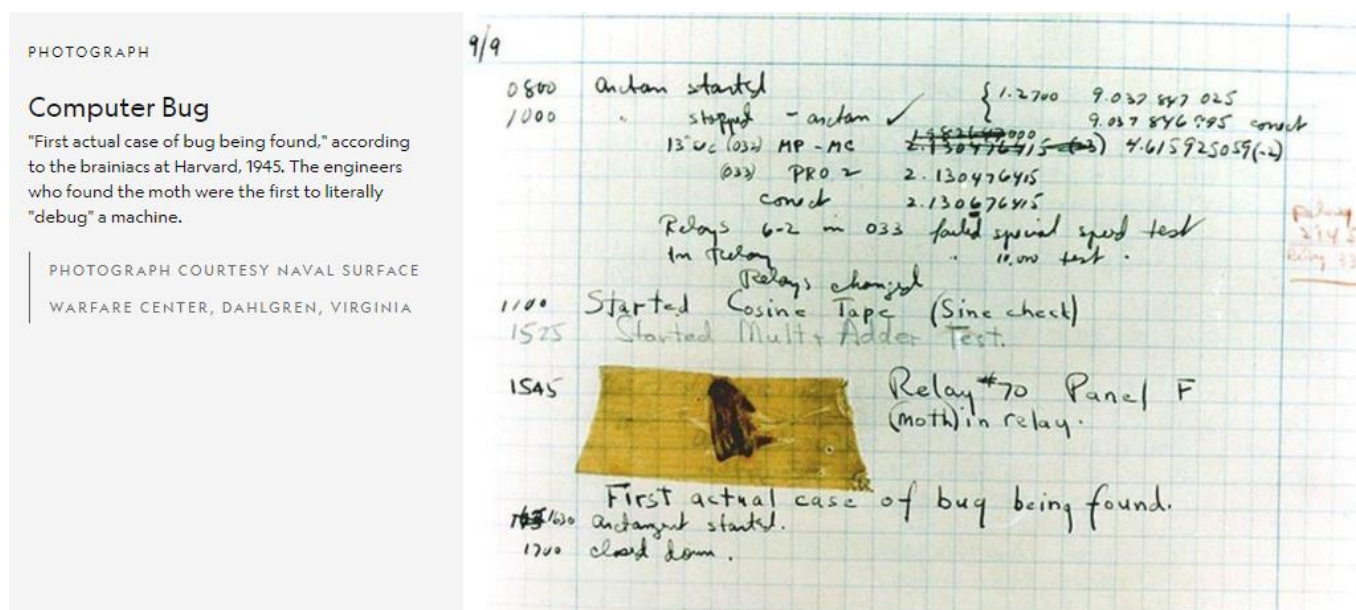 PHOTOGRAPH
Computer Bug
"First actual case of bug being found," according
to the brainiacs at Harvard, 1945. The engineers
who found the moth were the first to literally
"debug" a machine.
PHOTOGRAPH COURTESY NAVAL SURFACE
WARFARE CENTER, DAHLGREN, VIRGINIA
9/9
0800 arctan started { 1.2700 9.037 847 025
1000 " stopped - arctan ✓ 9.037 846 995 correct
13"uc (032) MP - MC 2.130476415 (-3) 4.615925059(-2)
(033) PRO 2 2.130476415
correct 2.130676415
Relays 6-2 in 033 failed special speed test
In Relay " 10,000 test .
Relays changed
1100 Started Cosine Tape (Sine check)
1525 Started Mult+Adder Test.
1545 Relay #70 Panel F
(moth) in relay.
First actual case of bug being found.
1630 arctangent started.
1700 closed down.